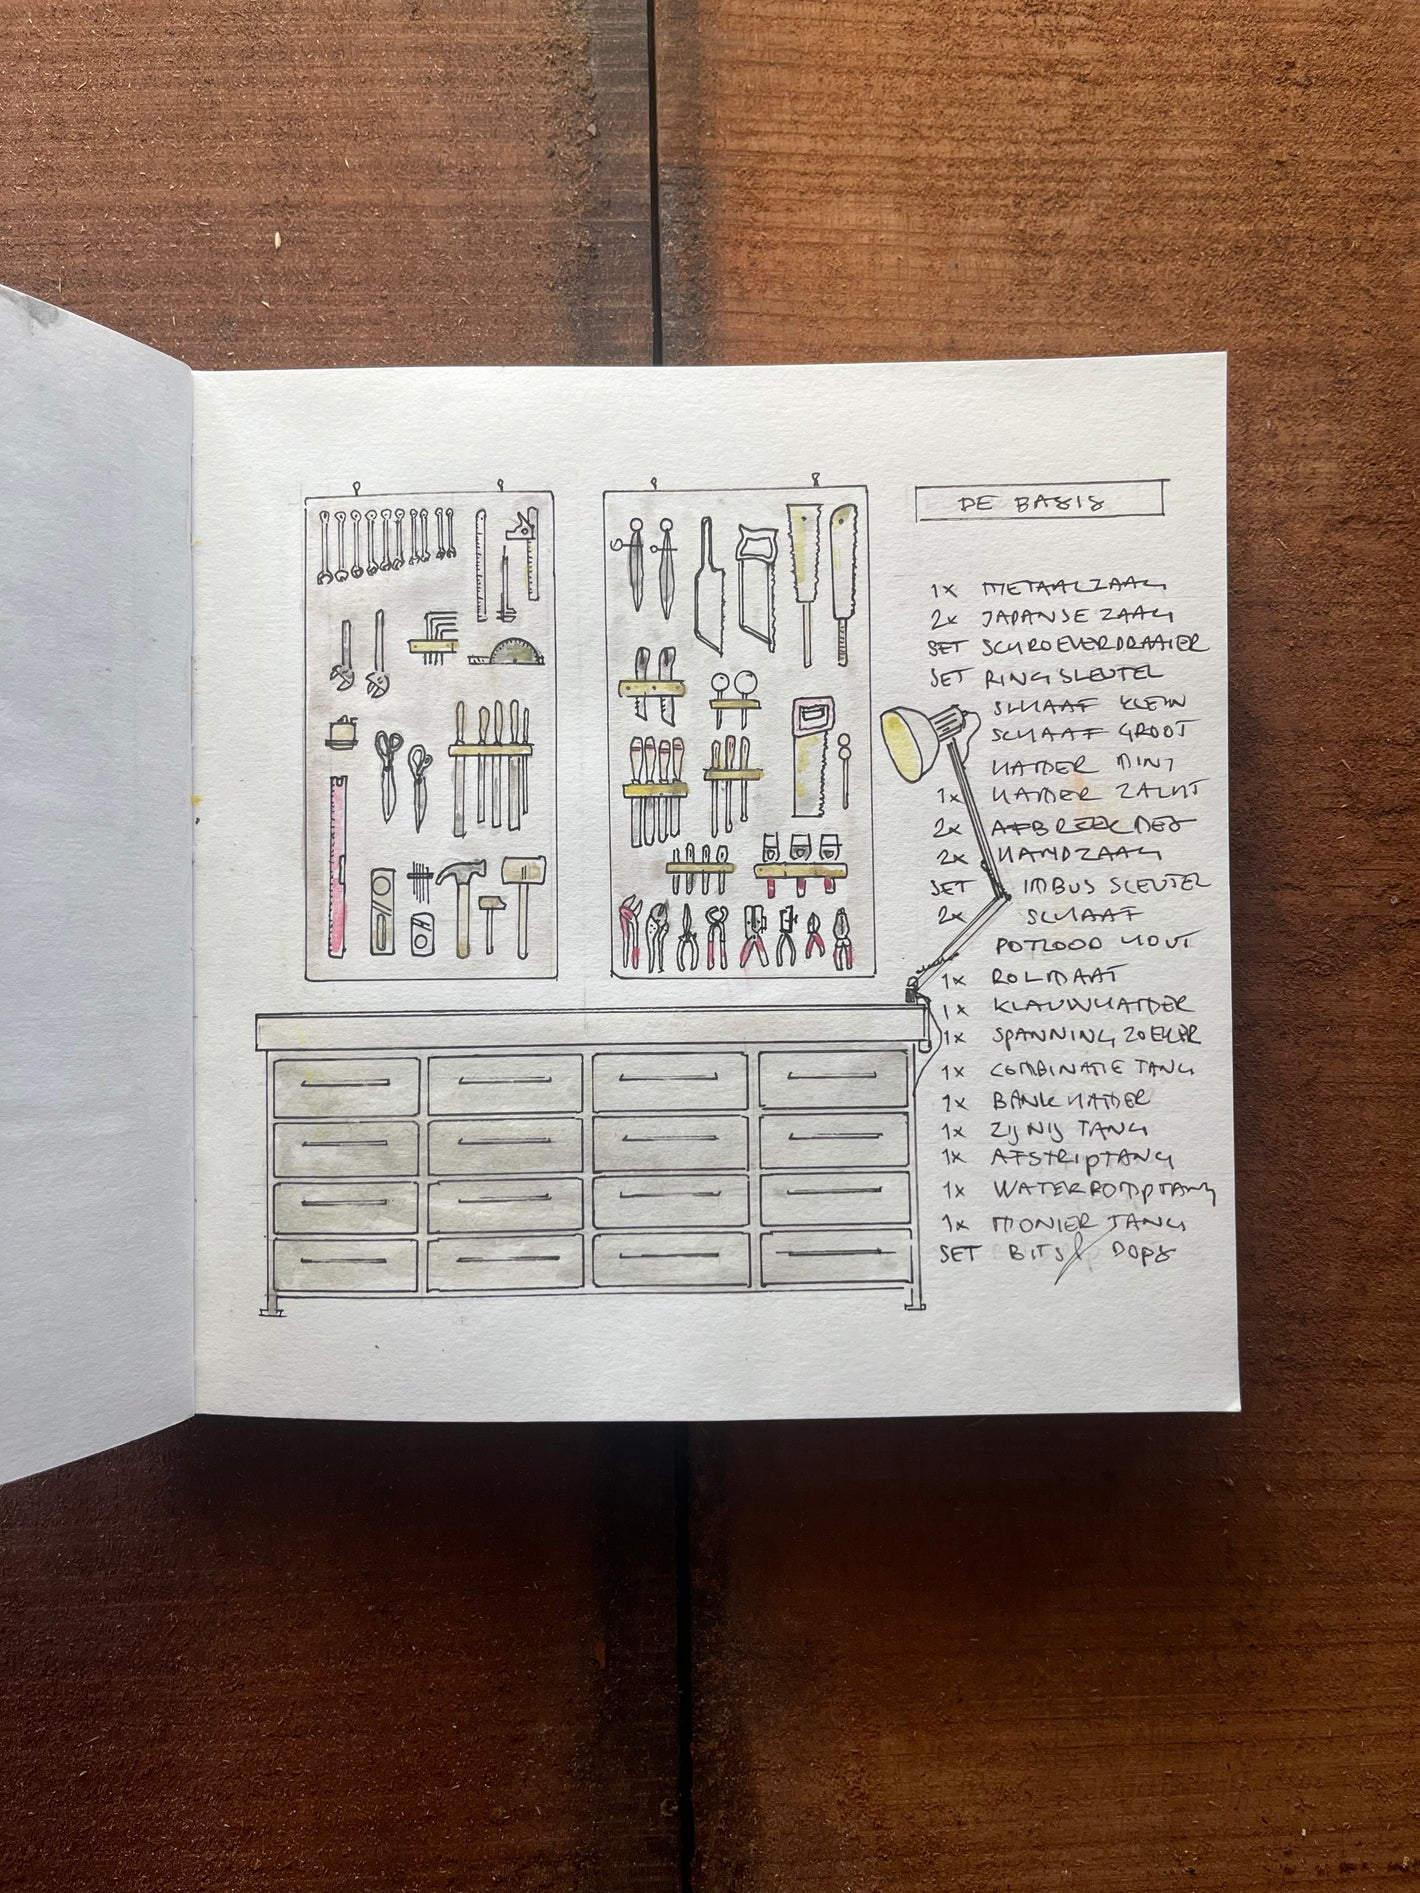 DE BASIS
1x METAALZAAG
2x JAPANSE ZAAG
SET SCHROEVERDRAAIER
SET RINGSLEUTEL
SCHAAF KLEIN
SCHAAF GROOT
HAMER MINI
1x HAMER ZACHT
2x AFBREEKMES
2x HANDZAAG
SET IMBUS SLEUTEL
2x SCHAAF
POTLOOD HOUT
1x ROLMAAT
1x KLAUWHAMER
1x SPANNINGZOEKER
1x COMBINATIE TANG
1x BANKHAMER
1x ZIJNIJ TANG
1x AFSTRIPTANG
1x WATERPOMPTANG
1x MONIER TANG
SET BITS / DOPS